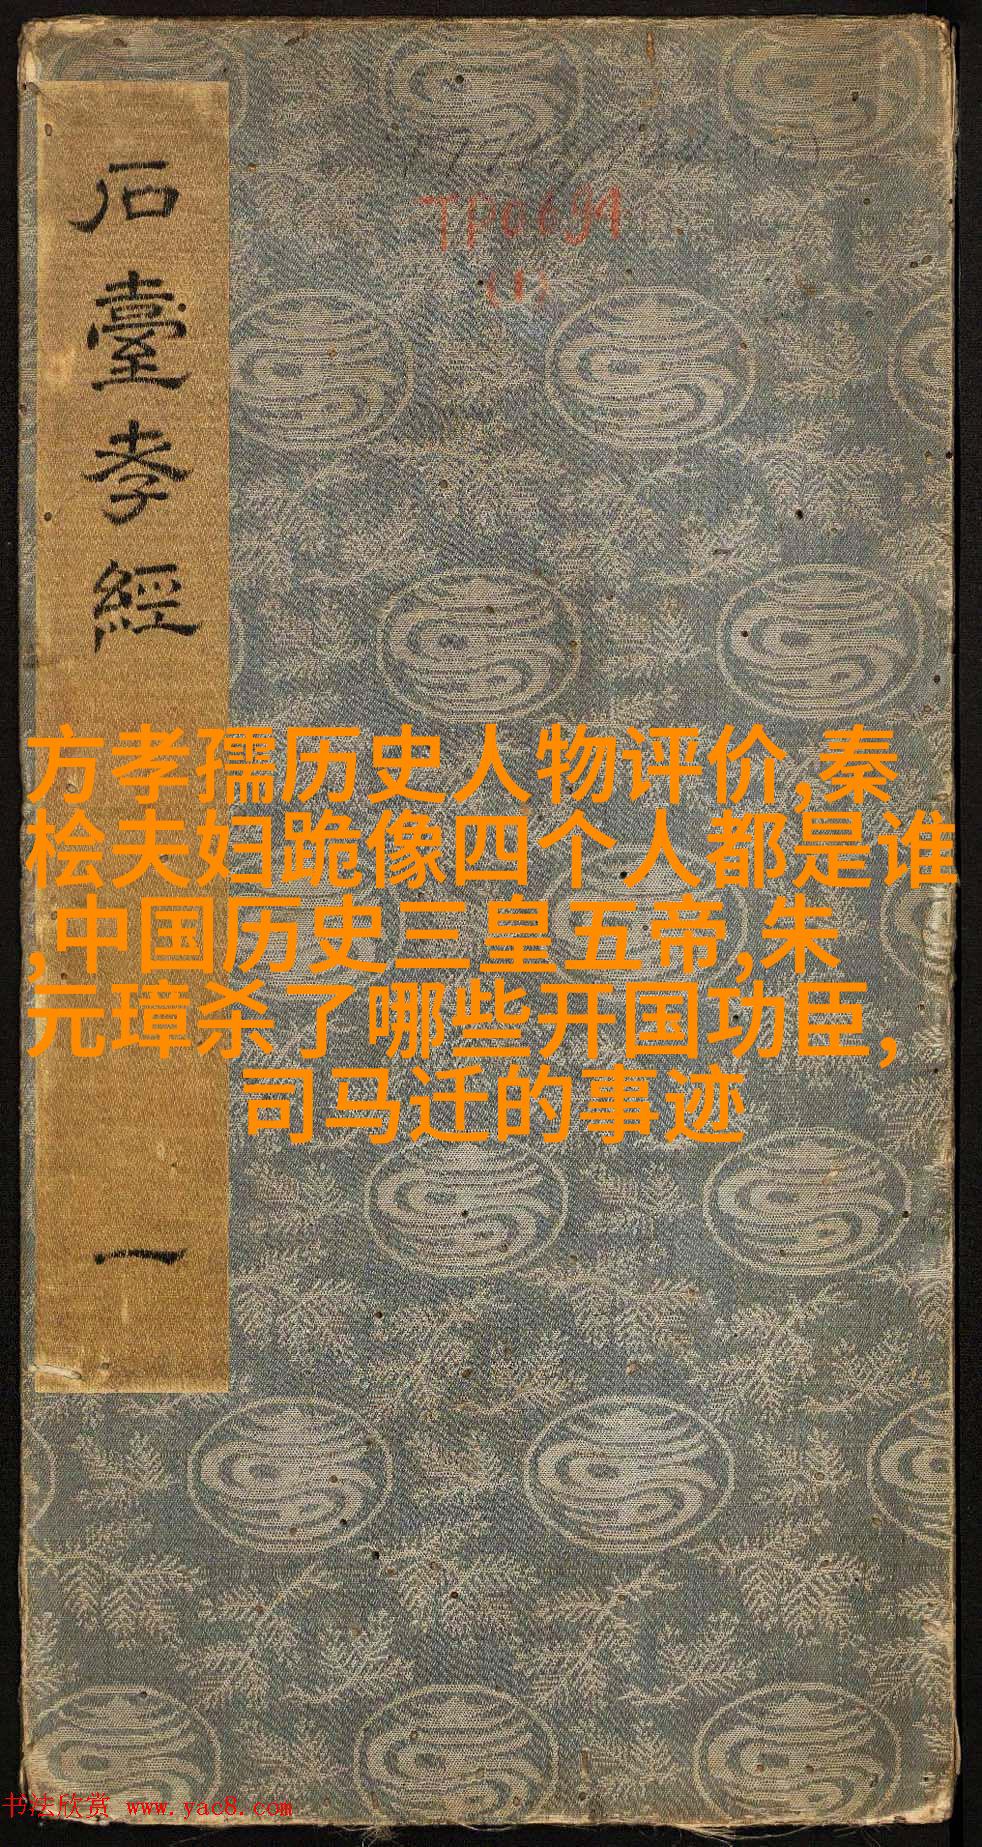 石臺孝經
一
TP0691
(1)
方孝孺历史人物评价,秦
桧夫妇跪像四个人都是谁
,中国历史三皇五帝,朱
元璋杀了哪些开国功臣,
司马迁的事迹
书法欣赏 www.yac8.com